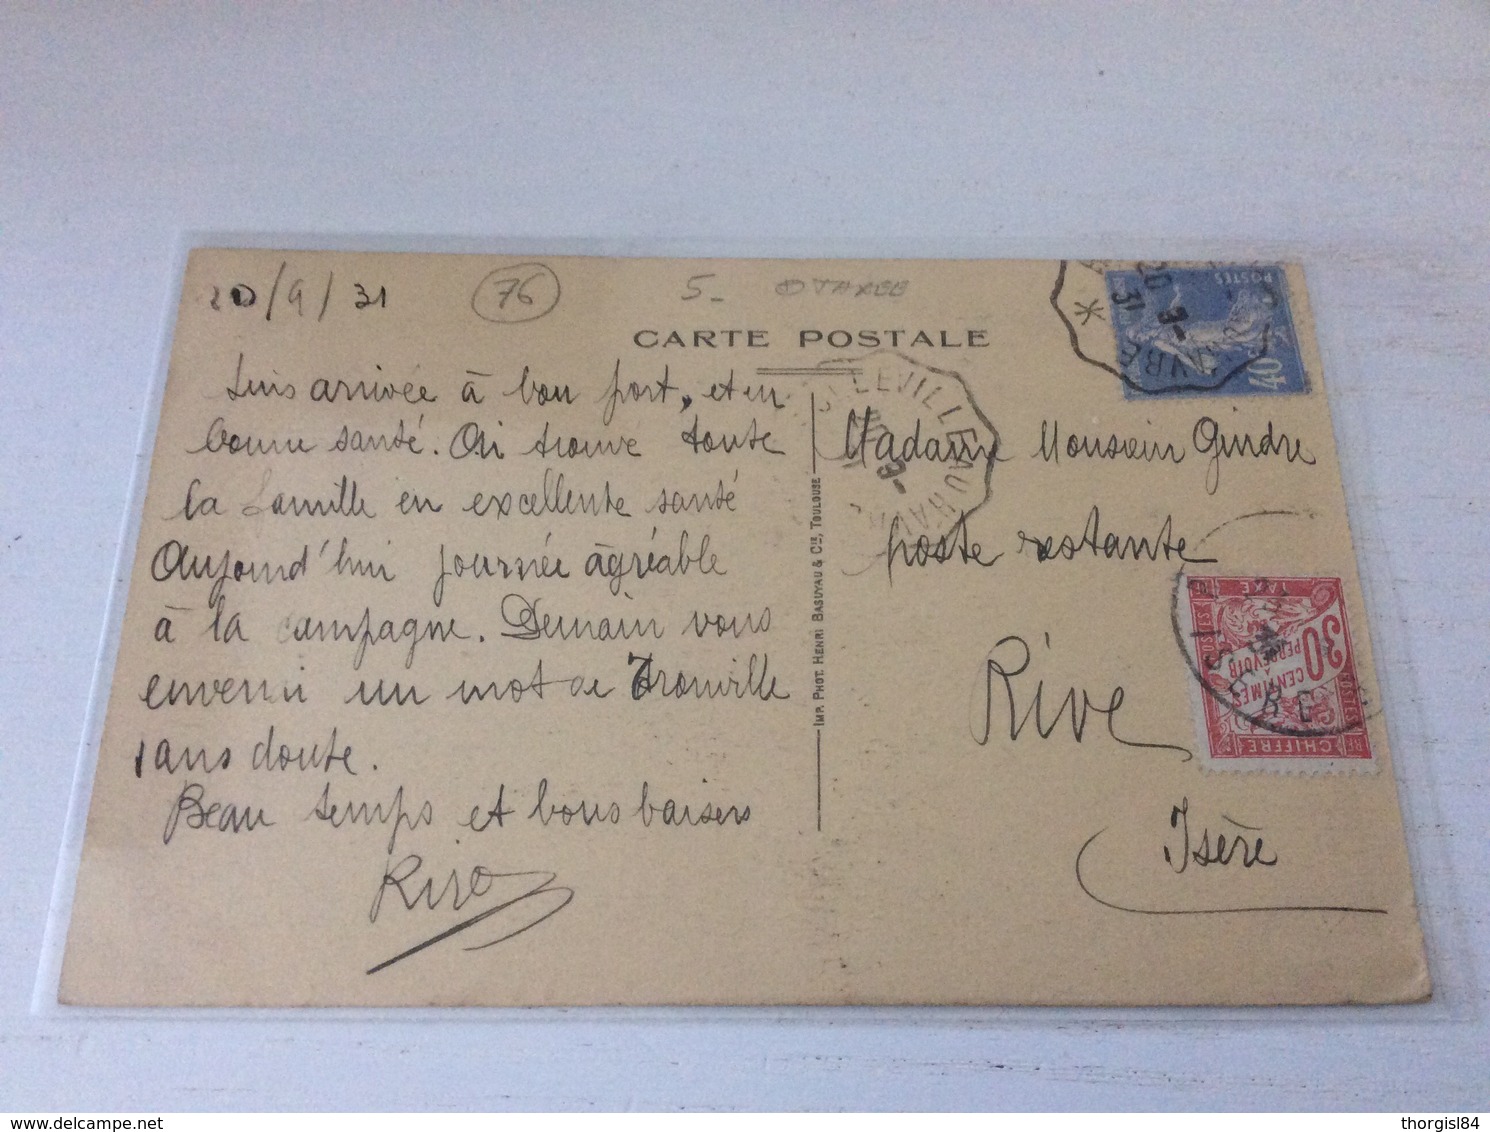 20/9/31
76
5-
TAXEE
CARTE POSTALE
Suis arrivée à bon port, et en
bonne santé. Ai trouvé toute
la famille en excellente santé
Aujourd'hui journée agréable
à la campagne. Demain vous
enverrai un mot de Trouville
sans doute.
Beau temps et bons baisers
IMP. PHOT. HENRI BASUYAU & CIE, TOULOUSE
Madame Monsieur Gindre
poste restante
Rive
Isère
POSTES
40
20
-9
31
LLEVILLE AU HAV
TAXE
30
CENTIMES
A
PERCEVOIR
CHIFFRE
ISERE
www.delcampe.net
thorgisl84